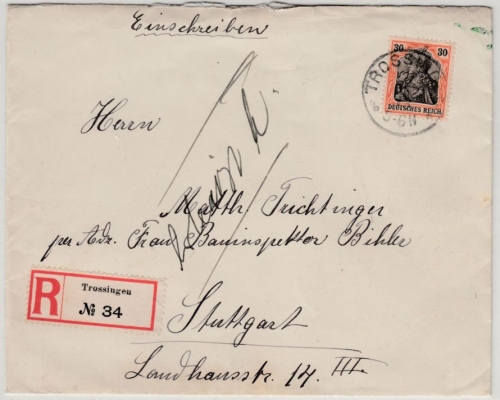 Einschreiben
30 30
DEUTSCHES REICH
TROSSI
5-6N
Herrn
Matth. Trichtinger
per Adr. Frau Bauinspektor Bihler
R Trossingen
№ 34
Stuttgart
Landhausstr. 14. III.